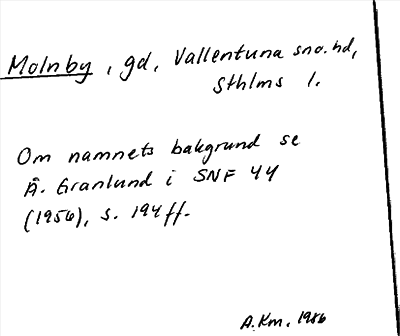 Molnby, gd, Vallentuna sn o. hd,
Sthlms l.
Om namnets bakgrund se
Å. Granlund i SNF 44
(1956), s. 194 ff.
A.Km. 1986